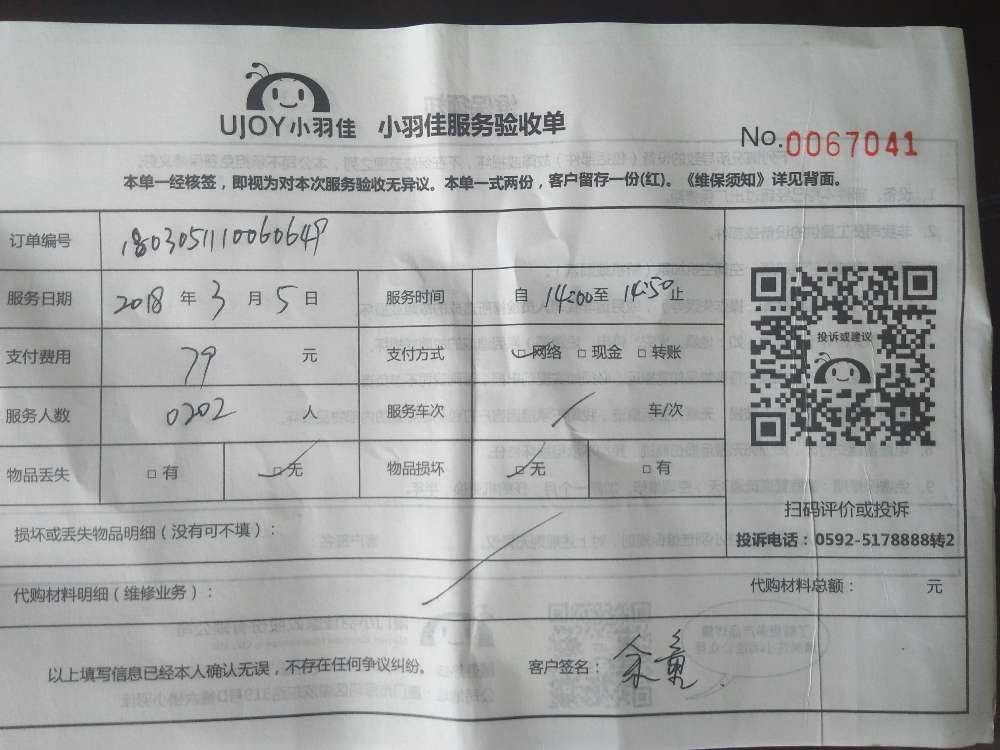 UJOY小羽佳 小羽佳服务验收单
No.0067041
本单一经核签，即视为对本次服务验收无异议。本单一式两份，客户留存一份(红)。《维保须知》详见背面。
订单编号 180305111006064
服务日期 2018 年 3 月 5 日 服务时间 自 14:00至 14:50止
支付费用 79 元 支付方式 □网络 □现金 □转账
服务人数 0202 人 服务车次 车/次
物品丢失 □有 □无 物品损坏 □无 □有
投诉或建议
扫码评价或投诉
投诉电话：0592-5178888转2
损坏或丢失物品明细（没有可不填）：
代购材料明细（维修业务）： 代购材料总额： 元
以上填写信息已经本人确认无误，不存在任何争议纠纷。 客户签名：